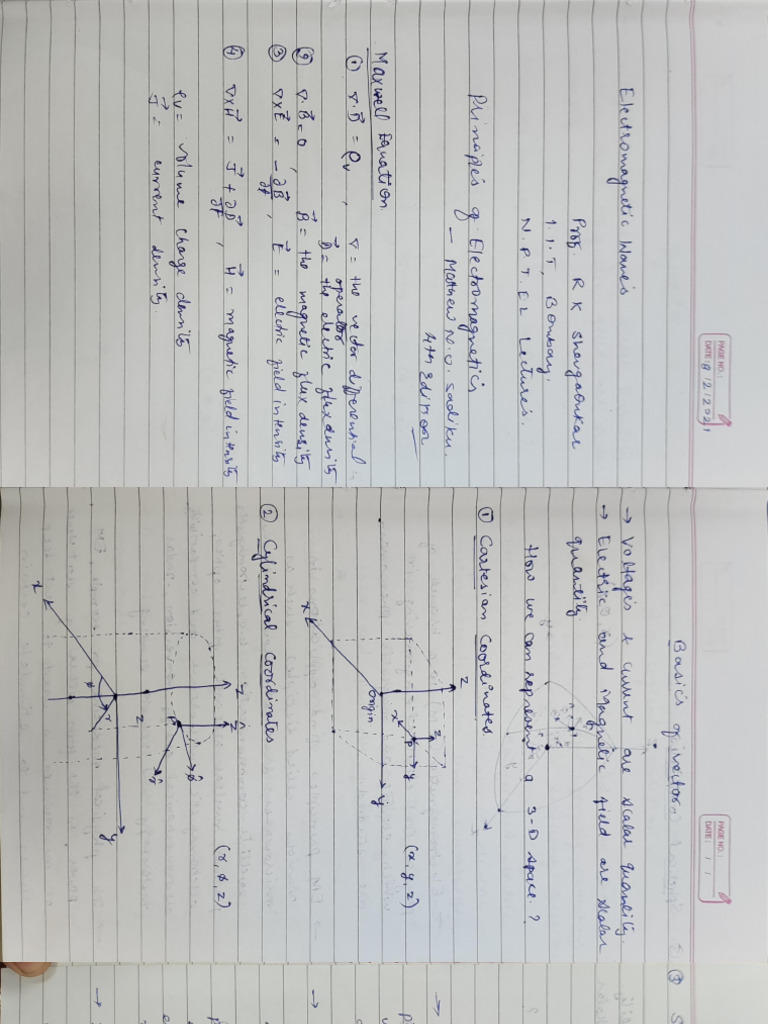 PAGE NO.:
DATE: 8/2/2021
Electromagnetic Waves
Prof. R K Shevgaonkar
I.I.T, Bombay.
N.P.T.EL Lectures.
Principles of Electromagnetics
- Mathew N.O. Sadiku.
4th Edition
Maxwell Equation
① ∇.D⃗ = ρv , ∇ = the vector differential
operator
D⃗ = the electric flux density
② ∇.B⃗ = 0 , B⃗ = the magnetic flux density
③ ∇×E⃗ = -∂B⃗/∂t , E⃗ = electric field intensity
④ ∇×H⃗ = J⃗ + ∂D⃗/∂t , H⃗ = magnetic field intensity
ρv = volume charge density
J⃗ = current density.
PAGE NO.:
DATE: / /
Basics of vector
→ Voltages & current are scalar quantity.
→ Electric and Magnetic field are scalar
quantity
How we can represent a 3-D space ?
① Cartesian Coordinates
z
(x, y, z)
z
x
P
y
origin
y
x
② Cylindrical Coordinates
z
ẑ
(r, φ, z)
P
φ̂
r̂
z
φ
r
y
x
③ S